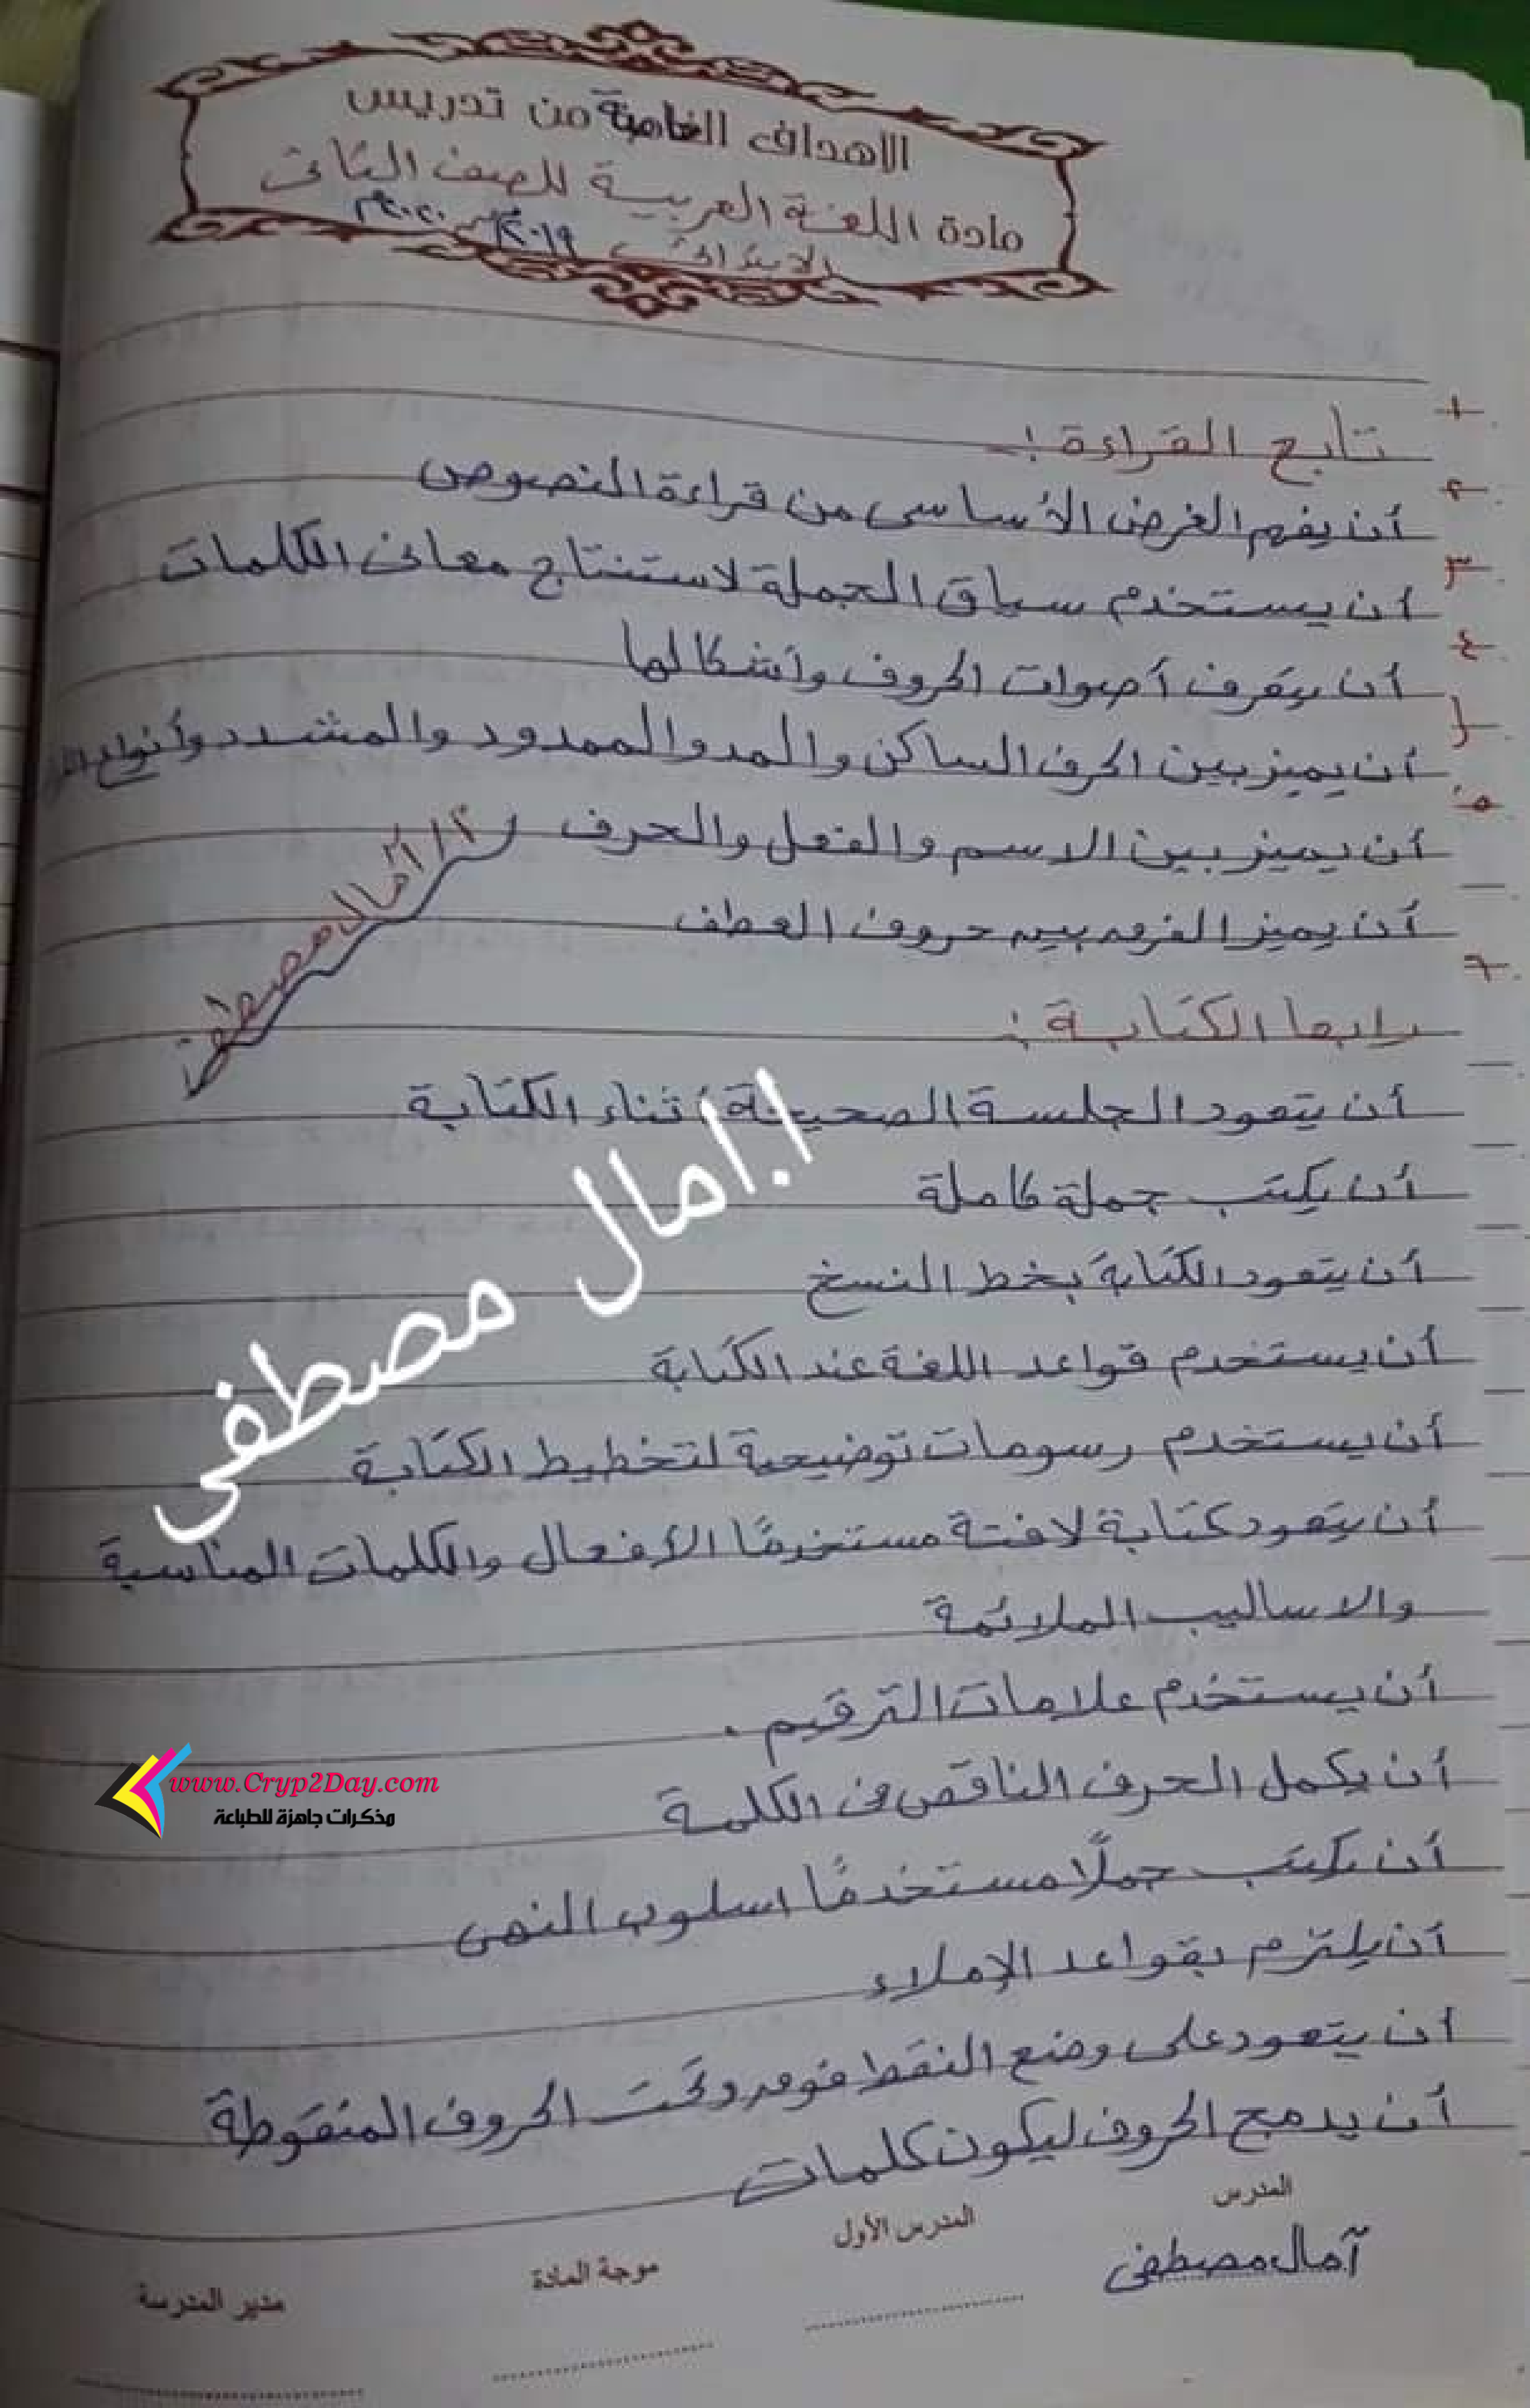 الأهداف الخاصة من تدريس
مادة اللغة العربية للصف الثانى
الابتدائى ٢٠١٩ ٢٠٢٠م
تابع القراءة :
أن يفهم الغرض الأساسى من قراءة النصوص
أن يستخدم سياق الجملة لاستنتاج معانى الكلمات
أن يتعرف أصوات الحروف وأشكالها
أن يميز بين الحرف الساكن والمد والممدود والمشدد وأنواع
أن يميز بين الاسم والفعل والحرف
أن يميز الفرق بين حروف العطف
أ / آمال مصطفى
رابعا الكتابة :
أن يتعود الجلسة الصحيحة أثناء الكتابة
أن يكتب جملة كاملة
أن يتعود الكتابة بخط النسخ
أن يستخدم قواعد اللغة عند الكتابة
أن يستخدم رسومات توضيحية لتخطيط الكتابة
أن يتعود كتابة لافتة مستخدمًا الأفعال والكلمات المناسبة
والاساليب الملائمة
أن يستخدم علامات الترقيم .
أن يكمل الحرف الناقص فى الكلمة
أن يكتب جملًا مستخدمًا اسلوب النهى
أن يلتزم بقواعد الإملاء
أن يتعود على وضع النقط فوق وتحت الحروف المنقوطة
أن يدمج الحروف ليكون كلمات
ا.امال مصطفى
www.Cryp2Day.com
مذكرات جاهزة للطباعة
المدرس
المدرس الأول
موجة المادة
مدير المدرسة
آمال مصطفى